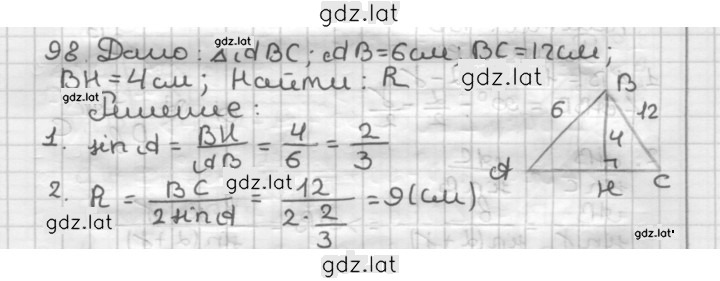 gdz.lat
98. Дано: gdz.lat ΔABC; AB=6см; BC=12см;
BH=4см; Найти: R
gdz.lat gdz.lat
Решение:
1. sin A = BH/AB = 4/6 = 2/3
2. R = BC/(2 sin A) = 12/(2·2/3) = 9(см)
gdz.lat gdz.lat
B
6 12
4
A H C
gdz.lat
gdz.lat